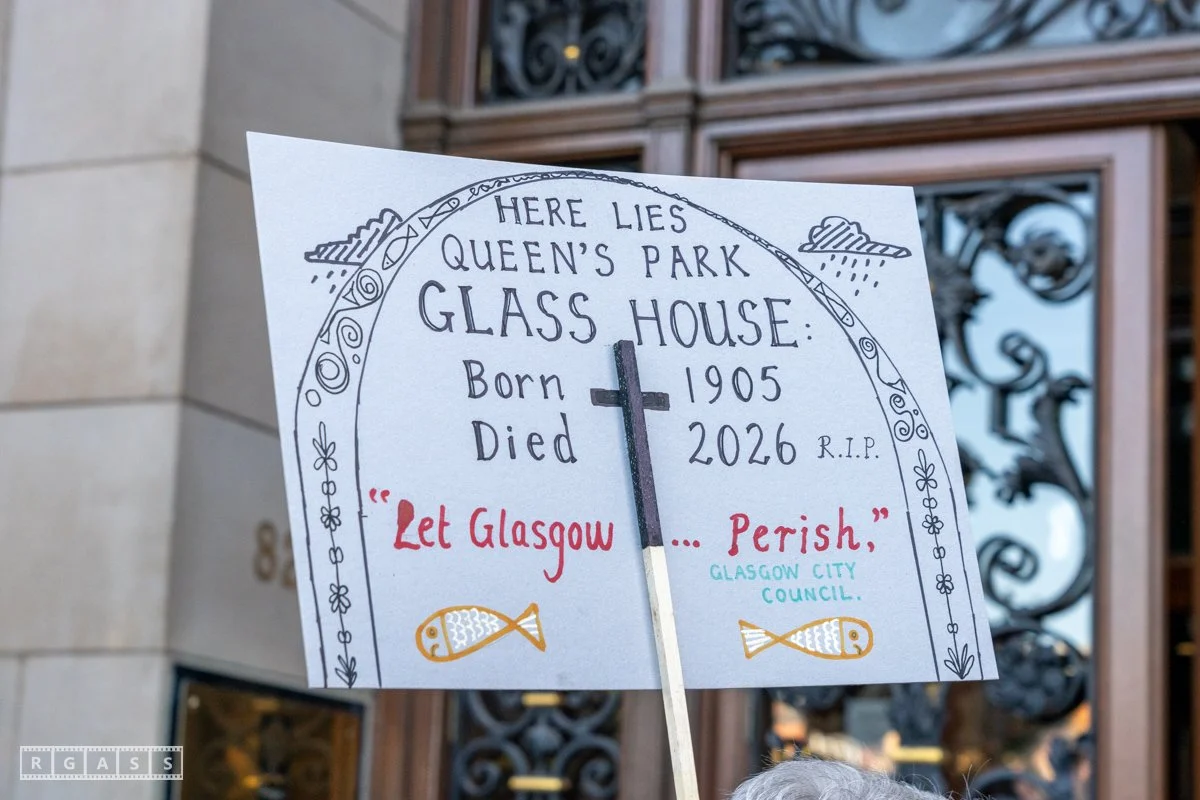 HERE LIES
QUEEN'S PARK
GLASS HOUSE:
Born 1905
Died 2026 R.I.P.
"Let Glasgow ... Perish,"
GLASGOW CITY
COUNCIL.
82
RGASS